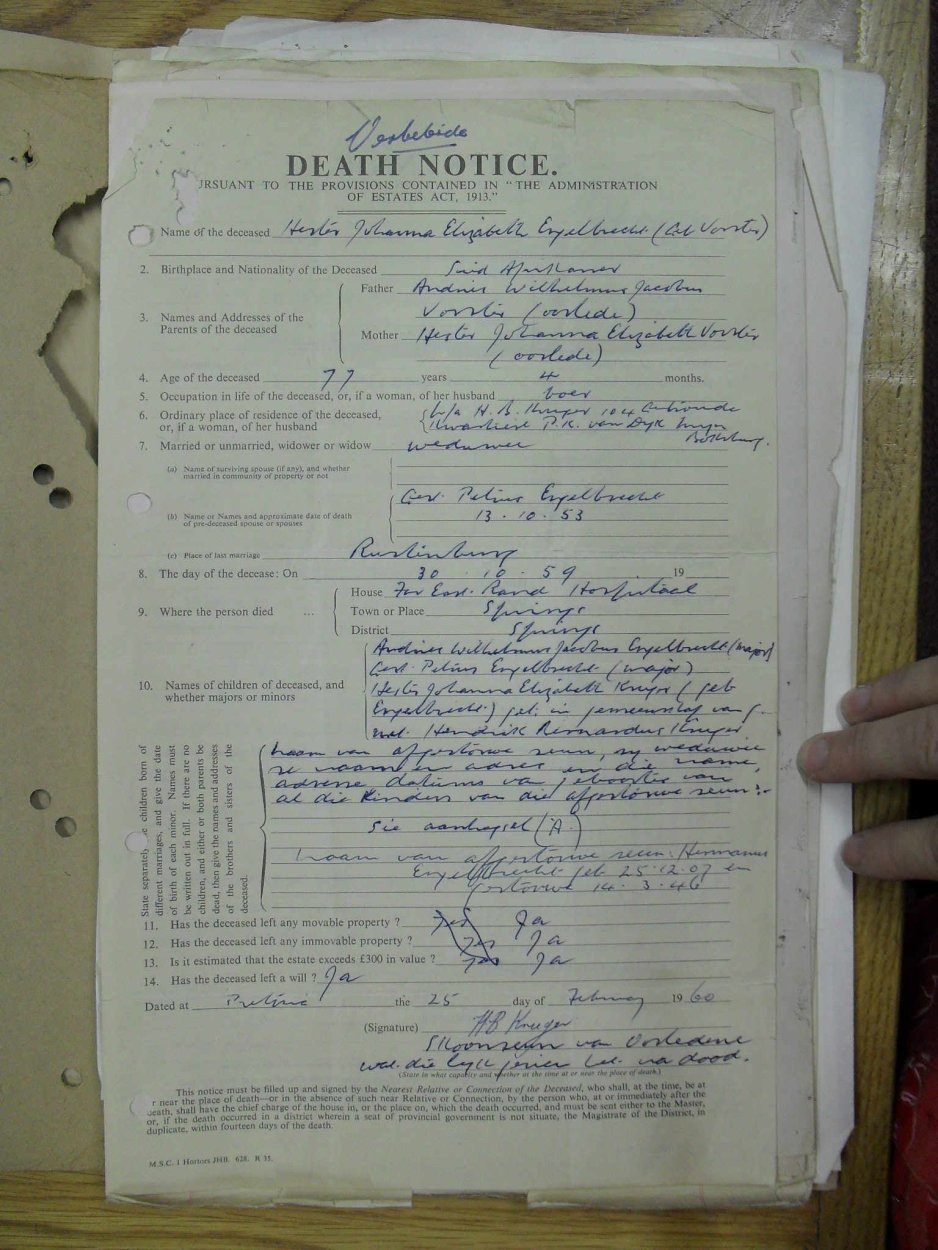 Verbeterde
DEATH NOTICE.
URSUANT TO THE PROVISIONS CONTAINED IN "THE ADMINISTRATION
OF ESTATES ACT, 1913."
Name of the deceased Hester Johanna Elizabeth Engelbrecht (Geb Vorster)
2. Birthplace and Nationality of the Deceased Suid Afrikaner
3. Names and Addresses of the Parents of the deceased
Father Andries Wilhelmus Jacobus
Vorster (oorlede)
Mother Hester Johanna Elizabeth Vorster
(oorlede)
4. Age of the deceased 77 years 4 months.
5. Occupation in life of the deceased, or, if a woman, of her husband boer
6. Ordinary place of residence of the deceased, or, if a woman, of her husband
p/a H. B. Kruger 104 Getroude
Kwartiere P.K. van Dyk Myn
Boksburg.
7. Married or unmarried, widower or widow weduwee
(a) Name of surviving spouse (if any), and whether married in community of property or not
(b) Name or Names and approximate date of death of pre-deceased spouse or spouses
Gert Petrus Engelbrecht
13.10.53
(c) Place of last marriage Rustenburg
8. The day of the decease: On 30.10.59 19
9. Where the person died ...
House Far East Rand Hospitaal
Town or Place Springs
District Springs
10. Names of children of deceased, and whether majors or minors
Andries Wilhelmus Jacobus Engelbrecht (major)
Gert Petrus Engelbrecht (major)
Hester Johanna Elizabeth Kruger (geb
Engelbrecht) get. in gemeenskap van g.
met Hendrik Bernardus Kruger
State separately the children born of different marriages, and give the date of birth of each minor. Names must be written out in full. If there are no children, and either or both parents be dead, then give the names and addresses of the brothers and sisters of the deceased.
Naam van afgestorwe seun, sy weduwee
se naam en adres en die name,
adresse datums van geboortes van
al die kinders van die afgestorwe seun:-
Sie aanhegsel (A)
Naam van afgestorwe seun: Hermanus
Engelbrecht geb 25.12.07 en
gestorwe 14.3.46
11. Has the deceased left any movable property? Yes Ja
12. Has the deceased left any immovable property? Yes Ja
13. Is it estimated that the estate exceeds £300 in value? Yes Ja
14. Has the deceased left a will? Ja
Dated at Pretoria the 25 day of February 1960
(Signature) HB Krueger
Skoonseun van Oorledene
wat die lyk gesien het na dood.
(State in what capacity and whether at the time at or near the place of death.)
This notice must be filled up and signed by the Nearest Relative or Connection of the Deceased, who shall, at the time, be at
r near the place of death—or in the absence of such near Relative or Connection, by the person who, at or immediately after the
death, shall have the chief charge of the house in, or the place on, which the death occurred, and must be sent either to the Master,
or, if the death occurred in a district wherein a seat of provincial government is not situate, the Magistrate of the District, in
duplicate, within fourteen days of the death.
M.S.C. 1 Hortors JHB. 628. R 35.